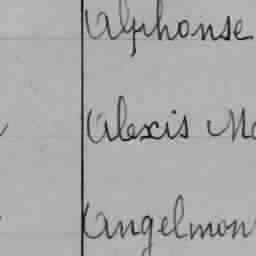 Alphonse
Alexis Mo
Angelmon